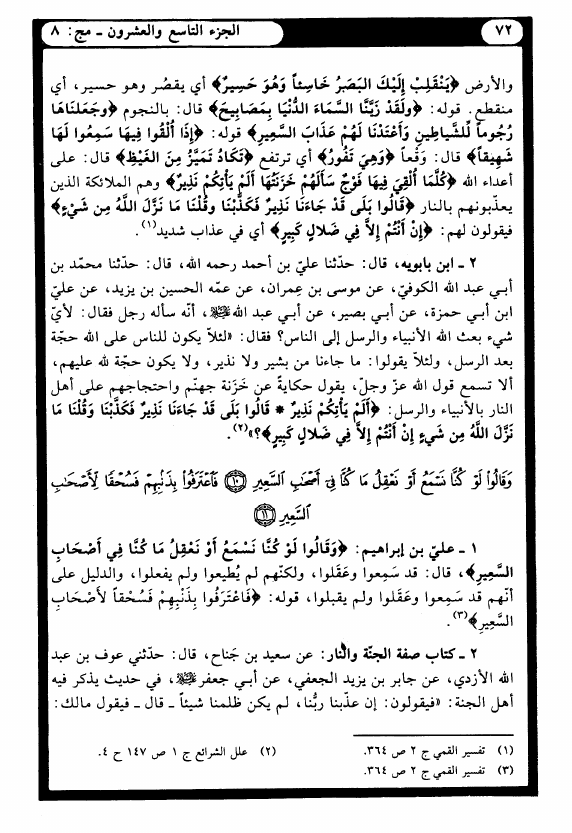 ٧٢ الجزء التاسع والعشرون ـ مج: ٨
والأرض ﴿يَنْقَلِبْ إِلَيْكَ البَصَرُ خَاسِئاً وَهُوَ حَسِيرٌ﴾ أي يقصُر وهو حسير، أي
منقطع. قوله: ﴿وَلَقَدْ زَيَّنَّا السَّمَاءَ الدُّنْيَا بِمَصَابِيحَ﴾ قال: بالنجوم ﴿وَجَعَلنَاهَا
رُجُوماً لِلْشياطِينِ وَأَعْتَدْنَا لَهُمْ عَذَابَ السَّعِيرِ﴾ قوله: ﴿إِذَا أُلْقُوا فِيهَا سَمِعُوا لَهَا
شَهِيقاً﴾ قال: وَقْعاً ﴿وَهِيَ تَفُورُ﴾ أي ترتفع ﴿تَكَادُ تَمَيَّزُ مِنَ الغَيْظِ﴾ قال: على
أعداء الله ﴿كُلَّمَا أُلْقِيَ فِيهَا فَوْجٌ سَأَلَهُمْ خَزَنَتُهَا أَلَمْ يَأْتِكُمْ نَذِيرٌ﴾ وهم الملائكة الذين
يعذّبونهم بالنار ﴿قَالُوا بَلَى قَدْ جَاءَنَا نَذِيرٌ فَكَذَّبْنَا وقُلْنَا مَا نَزَّلَ اللَّهُ مِن شَيْءٍ﴾
فيقولون لهم: ﴿إِنْ أَنْتُمْ إِلاَّ فِي ضَلالٍ كَبِيرٍ﴾ أي في عذاب شديد(١).
٢ ـ ابن بابويه، قال: حدّثنا عليّ بن أحمد رحمه الله، قال: حدّثنا محمّد بن
أبـي عبد الله الكوفيّ، عن موسى بن عِمران، عن عمّه الحسين بن يزيد، عن عليّ
ابن أبـي حمزة، عن أبـي بصير، عن أبـي عبد الله عليه السلام، أنّه سأله رجل فقال: لأيّ
شيء بعث الله الأنبياء والرسل إلى الناس؟ فقال: «لئلاّ يكون للناس على الله حجّة
بعد الرسل، ولئلاّ يقولوا: ما جاءنا من بشير ولا نذير، ولا يكون حجّة لله عليهم،
ألا تسمع قول الله عزّ وجلّ، يقول حكايةً عن خَزنة جهنّم واحتجاجهم على أهل
النار بالأنبياء والرسل: ﴿أَلَمْ يَأْتِكُمْ نَذِيرٌ * قَالُوا بَلَى قَدْ جَاءَنَا نَذِيرٌ فَكَذَّبْنَا وَقُلْنَا مَا
نَزَّلَ اللَّهُ مِن شَيءٍ إِنْ أَنْتُمْ إِلاَّ فِي ضَلالٍ كَبِيرٍ﴾؟»(٢).
وَقَالُوا۟ لَوْ كُنَّا نَسْمَعُ أَوْ نَعْقِلُ مَا كُنَّا فِىٓ أَصْحَٰبِ ٱلسَّعِيرِ ١٠ فَٱعْتَرَفُوا۟ بِذَنۢبِهِمْ فَسُحْقًا لِّأَصْحَٰبِ
ٱلسَّعِيرِ ١١
١ ـ عليّ بن إبراهيم: ﴿وَقَالُوا لَوْ كُنَّا نَسْمَعُ أَوْ نَعْقِلُ مَا كُنَّا فِي أَصْحَابِ
السَّعِيرِ﴾، قال: قد سَمِعوا وعَقَلوا، ولكنّهم لم يُطيعوا ولم يفعلوا، والدليل على
أنّهم قد سَمِعوا وعَقَلوا ولم يقبلوا، قوله: ﴿فَاعْتَرَفُوا بِذَنْبِهِمْ فَسُحْقاً لأَصْحَابِ
السَّعِيرِ﴾(٣).
٢ ـ كتاب صفة الجنّة والنار: عن سعيد بن جَناح، قال: حدّثني عوف بن عبد
الله الأزدي، عن جابر بن يزيد الجعفي، عن أبـي جعفر عليه السلام، في حديث يذكر فيه
أهل الجنة: «فيقولون: إن عذّبنا ربُّنا، لم يكن ظلمنا شيئاً ـ قال ـ فيقول مالك:
(١) تفسير القمي ج ٢ ص ٣٦٤. (٢) علل الشرائع ج ١ ص ١٤٧ ح ٤.
(٣) تفسير القمي ج ٢ ص ٣٦٤.